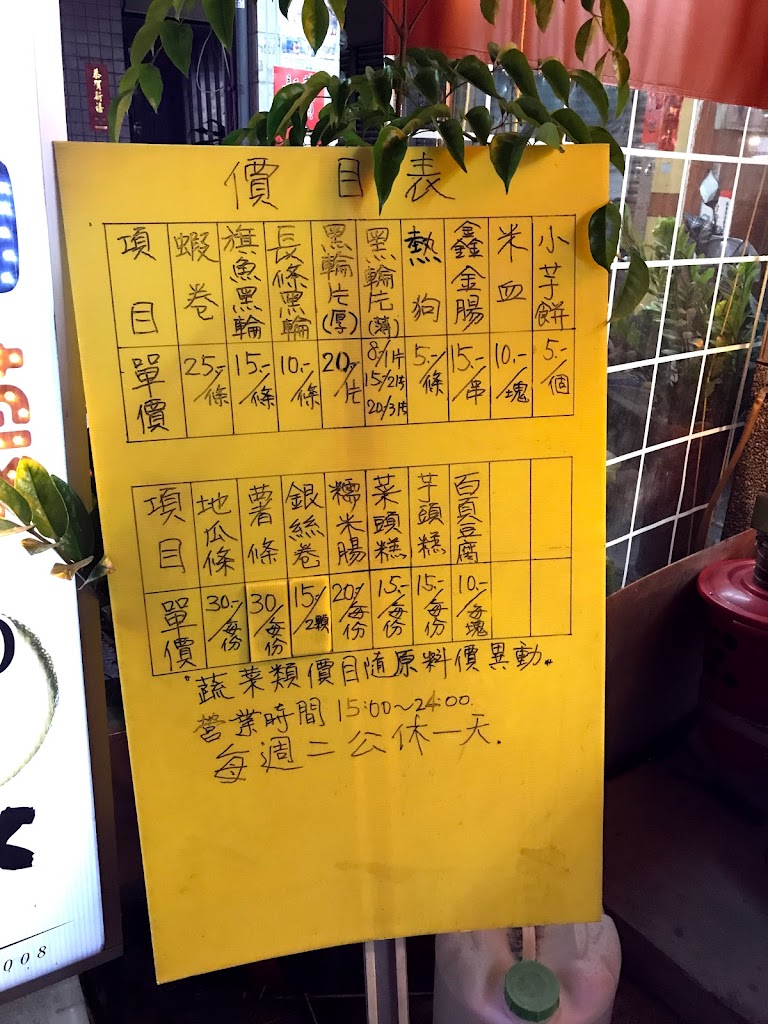 恭賀新禧
價目表
項目 蝦卷 旗魚黑輪 長條黑輪 黑輪片(厚) 黑輪片(薄) 熱狗 鑫鑫金腸 米血 小芋餅
單價 25.-/條 15.-/條 10.-/條 20.-/片 8/1片 15/2片 20/3片 5.-/條 15.-/串 10.-/塊 5.-/個
項目 地瓜條 薯條 銀絲卷 糯米腸 菜頭糕 芋頭糕 百頁豆腐
單價 30.-/每份 30/每份 15.-/2顆 20/每份 15.-/每份 15.-/每份 10.-/每塊
"蔬菜類價目隨原料價異動"
營業時間 15:00~24:00.
每週二公休一天.
008